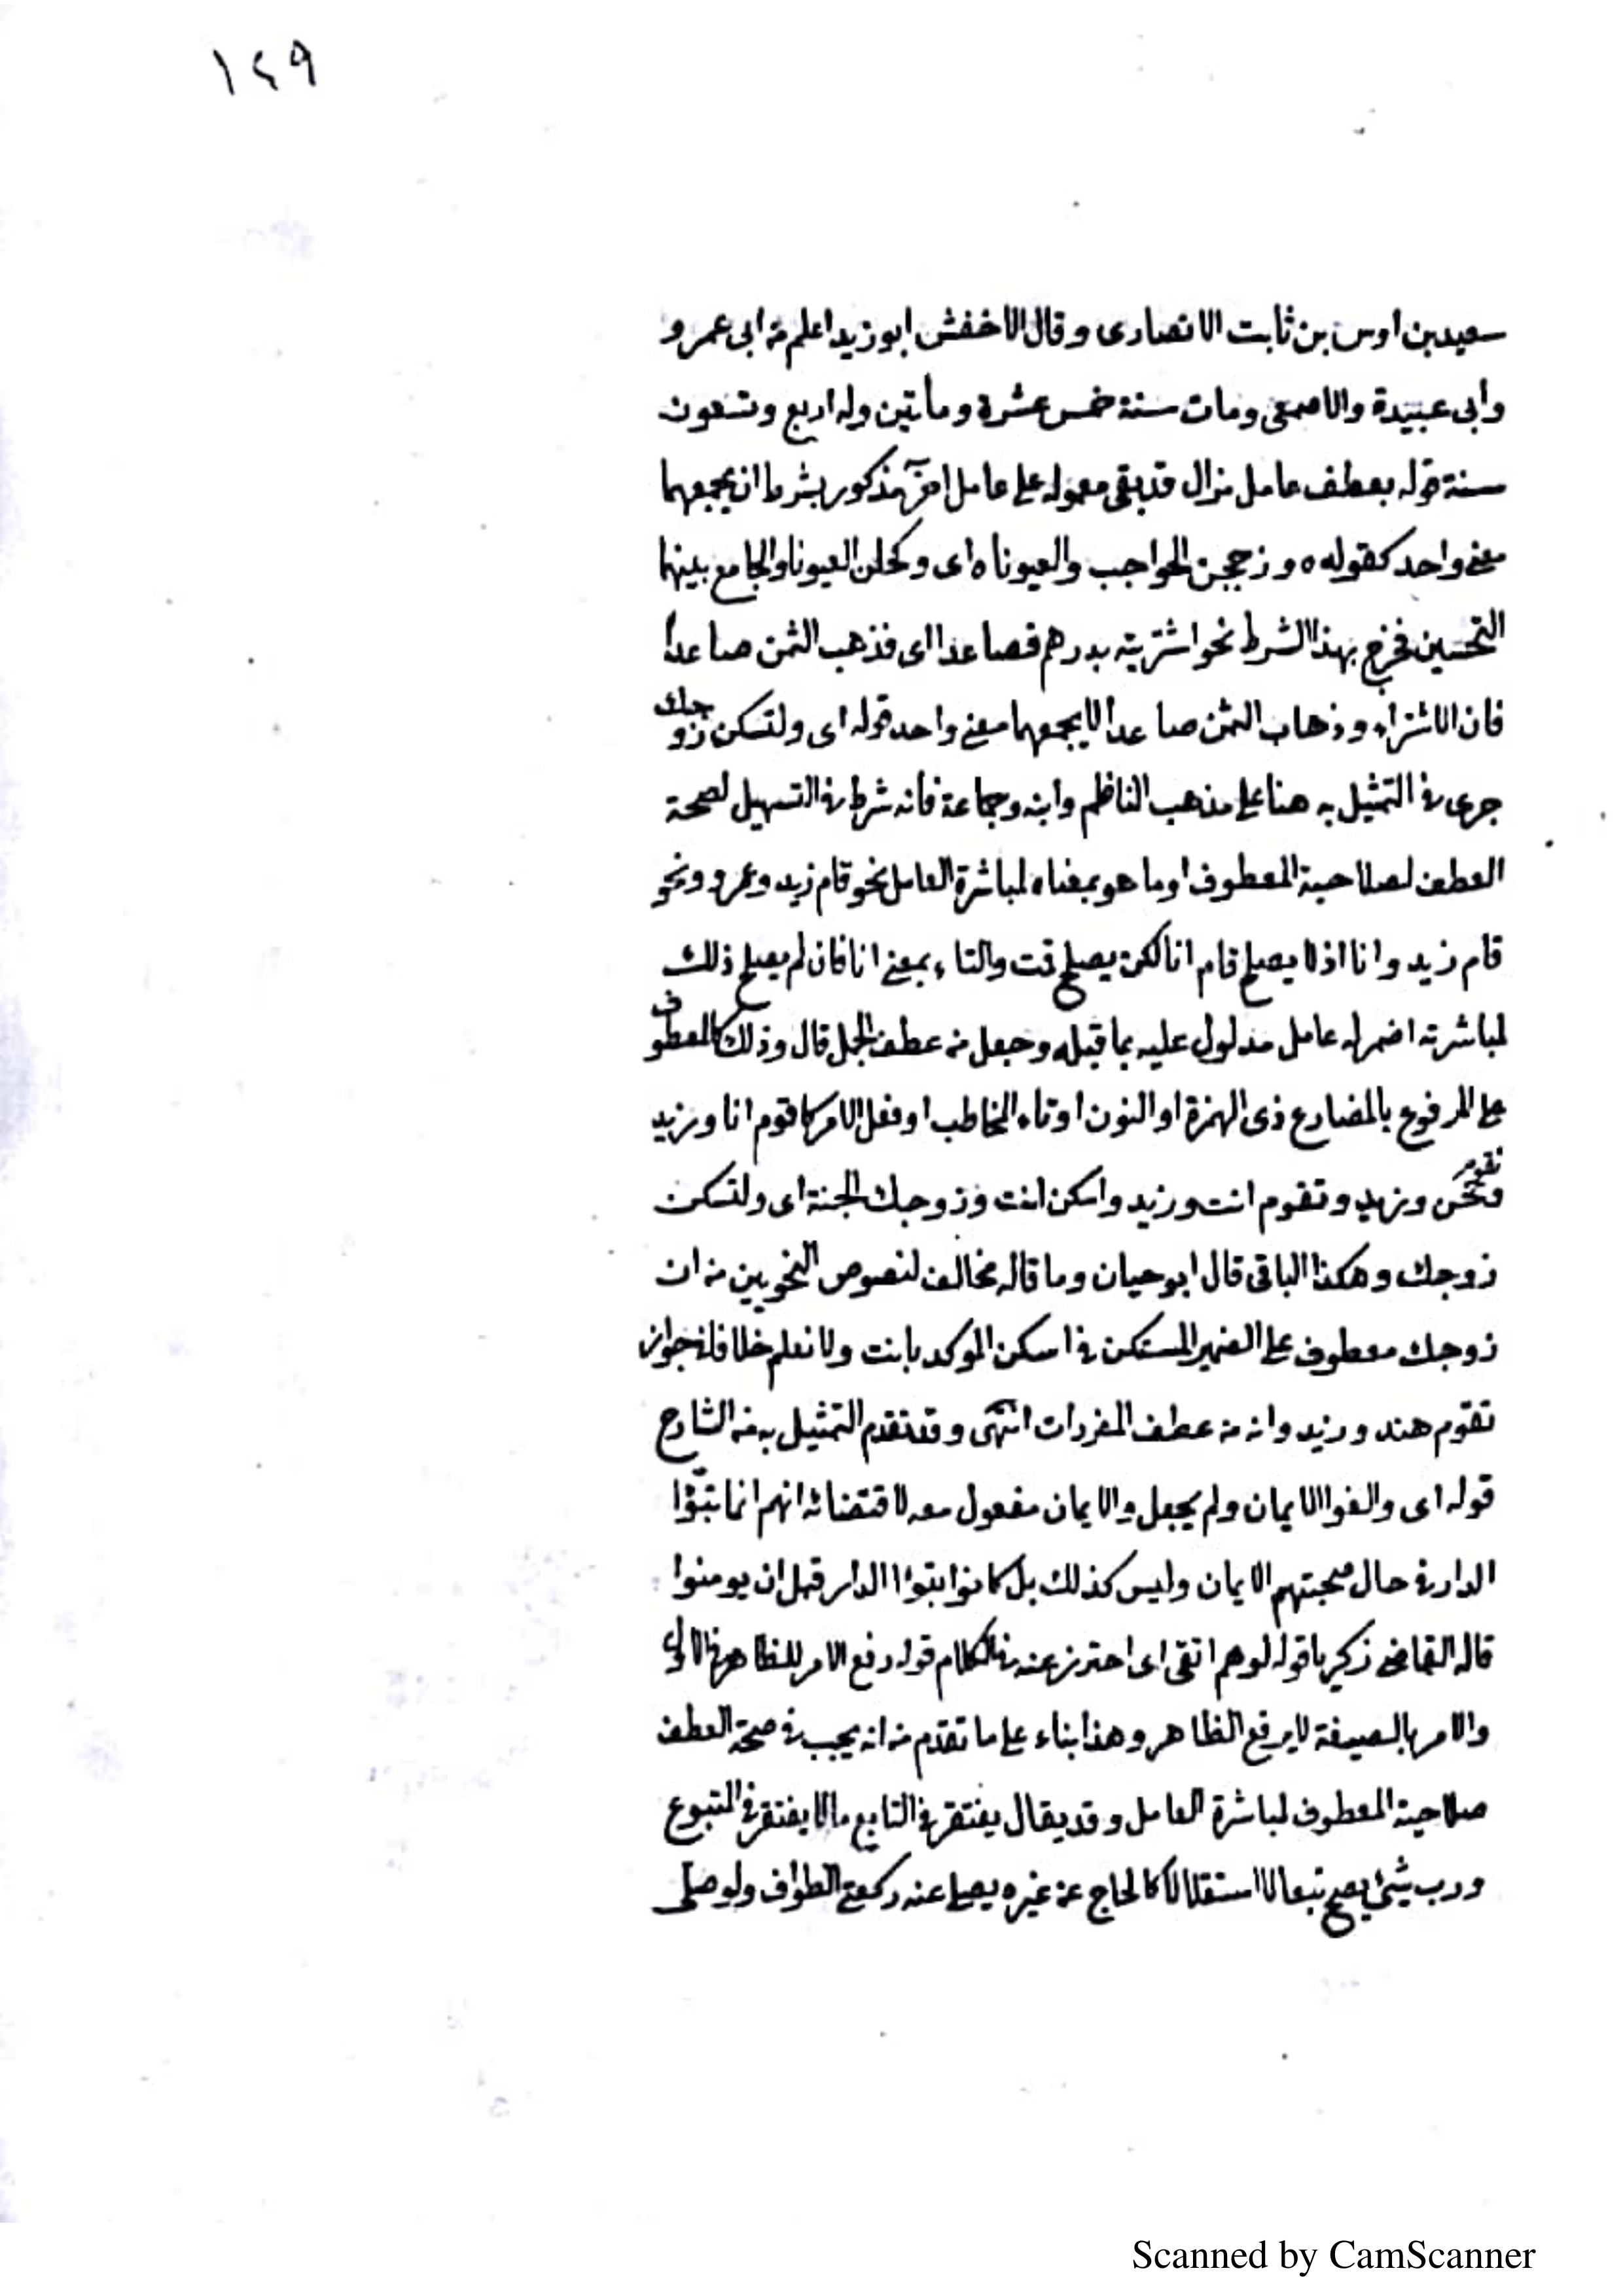 ١٤٩
سعيد بن اوس بن ثابت الانصارى وقال الاخفش ابو زيد اعلم من ابى عمرو
وابى عبيدة والاصمعى ومات سنة خمس عشرة ومأتين وله اربع وتسعون
سنة قوله بعطف عامل مزال قد بقى معموله على عامل آخر مذكور بشرط ان يجمعهما
معنى واحد كقوله ه وزججن الحواجب والعيونا ه اى وكحلن العيونا والجامع بينهما
التحسين فخرج بهذا الشرط نحو اشتريته بدرهم فصاعدا اى فذهب الثمن صاعدا
فان الاشتراء وذهاب الثمن صاعدا لا يجمعهما معنى واحد قوله اى ولتسكن زوجك
جرى فى التمثيل به هنا على مذهب الناظم وابنه وجماعة فانه شرط فى التسهيل لصحة
العطف لصلاحية المعطوف او ما هو بمعناه لمباشرة العامل نحو قام زيد وعمرو ونحو
قام زيد وانا اذ لا يصلح قام انا لكن يصلح قت والتاء بمعنى انا فان لم يصلح ذلك
لمباشرته اضمر له عامل مدلول عليه بما قبله وجعل من عطف الجمل قال وذلك كالمعطوف
على المرفوع بالمضارع ذى الهمزة او النون او تاء المخاطب او فعل الامر كاقوم انا وزيد
ونقوم نحن وزيد وتقوم انت وزيد واسكن انت وزوجك الجنة اى ولتسكن
زوجك وهكذا الباقى قال ابو حيان وما قاله مخالف لنصوص النحويين من ان
زوجك معطوف على الضمير المستكن فى اسكن المؤكد بانت ولا نعلم خلافا فى جواز
تقوم هند وزيد وانه من عطف المفردات انتهى وقد تقدم التمثيل به من الشارح
قوله اى والفوا الايمان ولم يجعل والايمان مفعول معه لاقتضائه انهم انما تبؤا
الدار فى حال صحبتهم الايمان وليس كذلك بل كانوا تبؤا الدار قبل ان يومنوا
قاله القاضى زكريا قوله لوهم اتقى اى احترز عنه فى الكلام قوله رفع الامر للظاهر فى الاولى
والامر بالصيغة لا يرفع الظاهر وهذا بناء على ما تقدم من انه يجب فى صحة العطف
صلاحية المعطوف لمباشرة العامل وقد يقال يغتفر فى التابع ما لا يغتفر فى المتبوع
ورب شئ يصح تبعا لا استقلالا كالحاج عن غيره يصلى عنه ركعتى الطواف ولو صلى
Scanned by CamScanner